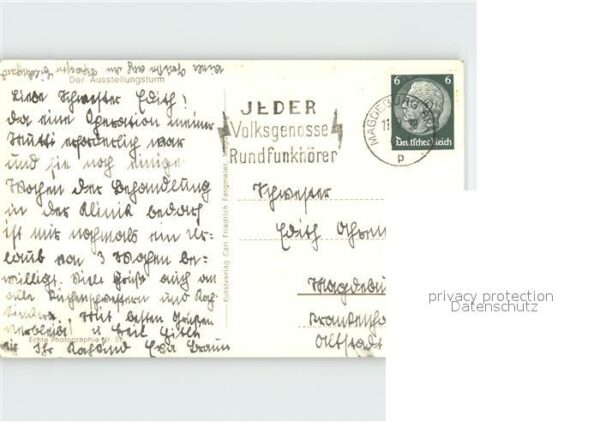 Der Ausstellungsturm
Liebe Schwester Edith!
Da eine Operation meiner
Mutti erforderlich war
und sie noch einige
Wochen der Behandlung
in der Klinik bedarf
ist mir nochmals ein Ur-
laub von 3 Wochen be-
willigt. Viele Grüße auch an
alle Küchenschwestern und
Mit besten Grüßen
verbleibt
Ihr Eva Braun
Echte Photographie Nr.
Kunstverlag Carl Friedrich Fangmeier, Magdeburg
JEDER
Volksgenosse
Rundfunkhörer
MAGDEBURG
P
6 6
Deutsches Reich
Schwester
Edith
Magdebu
Krankenha
Altstadt
privacy protection
Datenschutz